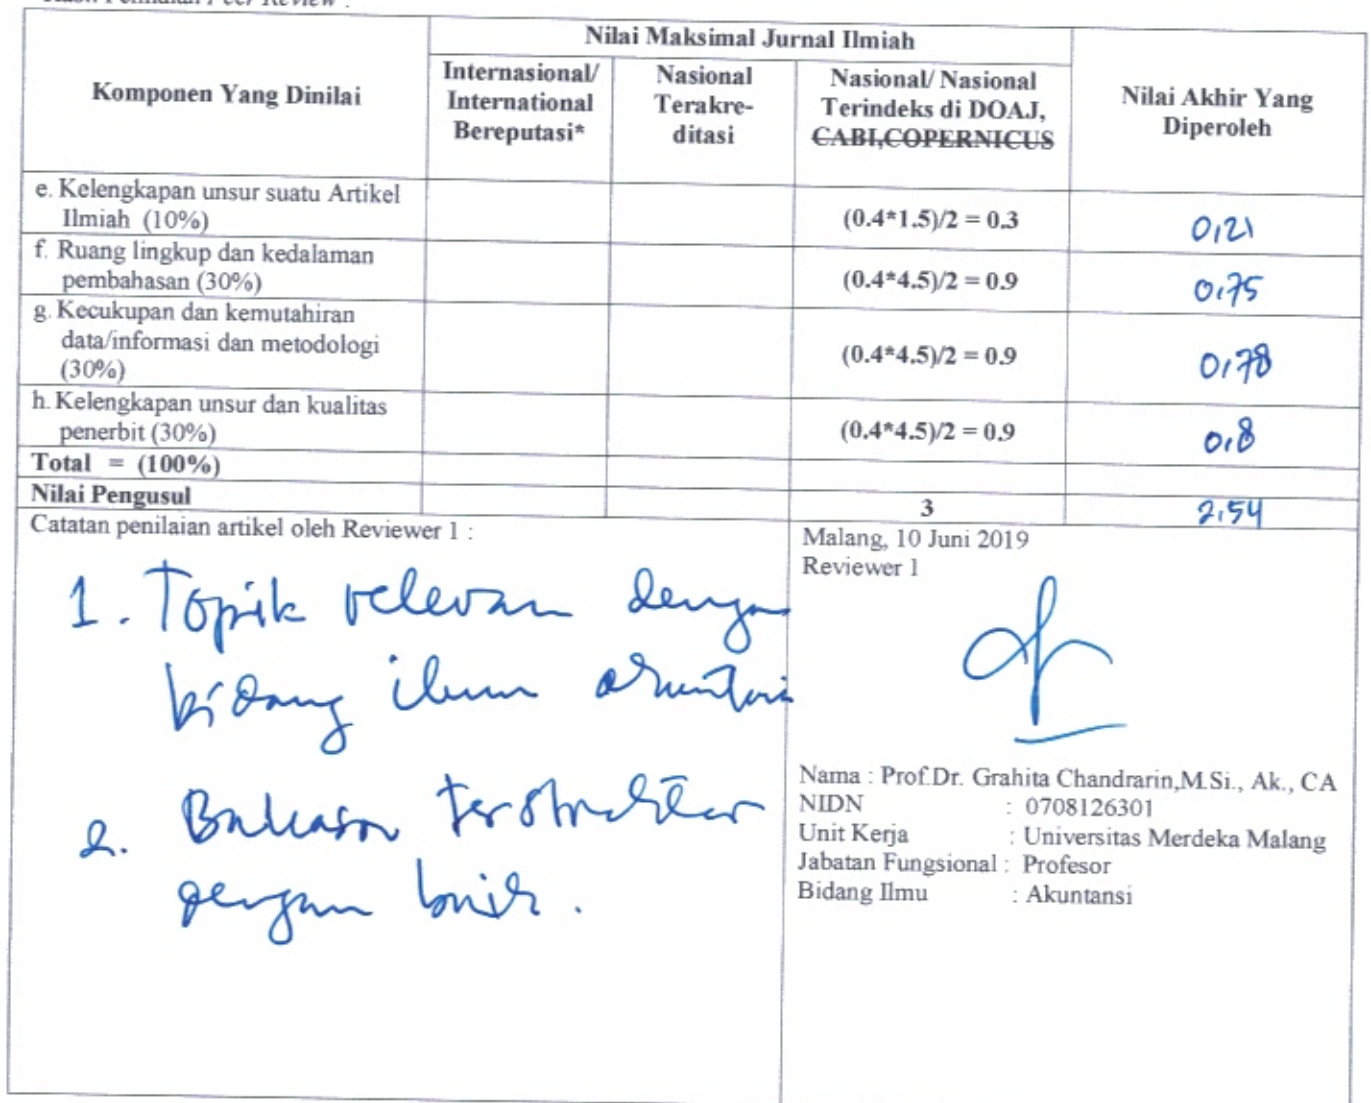 Hasil Penilaian Peer Review :
Nilai Maksimal Jurnal Ilmiah
Komponen Yang Dinilai
Internasional/
International
Bereputasi*
Nasional
Terakre-
ditasi
Nasional/ Nasional
Terindeks di DOAJ,
CABI,COPERNICUS
Nilai Akhir Yang
Diperoleh
e. Kelengkapan unsur suatu Artikel
Ilmiah (10%)
(0.4*1.5)/2 = 0.3
0,21
f. Ruang lingkup dan kedalaman
pembahasan (30%)
(0.4*4.5)/2 = 0.9
0,75
g. Kecukupan dan kemutahiran
data/informasi dan metodologi
(30%)
(0.4*4.5)/2 = 0.9
0,78
h. Kelengkapan unsur dan kualitas
penerbit (30%)
(0.4*4.5)/2 = 0.9
0,8
Total = (100%)
Nilai Pengusul
3
2,54
Catatan penilaian artikel oleh Reviewer 1 :
1. Topik relevan dengan
bidang ilmu akuntansi
2. Bahasan terstruktur
dengan baik.
Malang, 10 Juni 2019
Reviewer 1
Nama : Prof.Dr. Grahita Chandrarin,M.Si., Ak., CA
NIDN : 0708126301
Unit Kerja : Universitas Merdeka Malang
Jabatan Fungsional : Profesor
Bidang Ilmu : Akuntansi